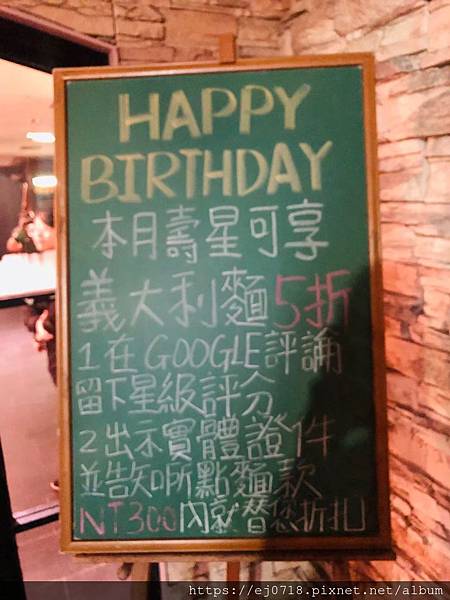 HAPPY
BIRTHDAY
本月壽星可享
義大利麵5折
1在GOOGLE評論
留下星級評分
2出示實體證件
並告知所點麵款
NT300內就替您折扣
https://ej0718.pixnet.net/album